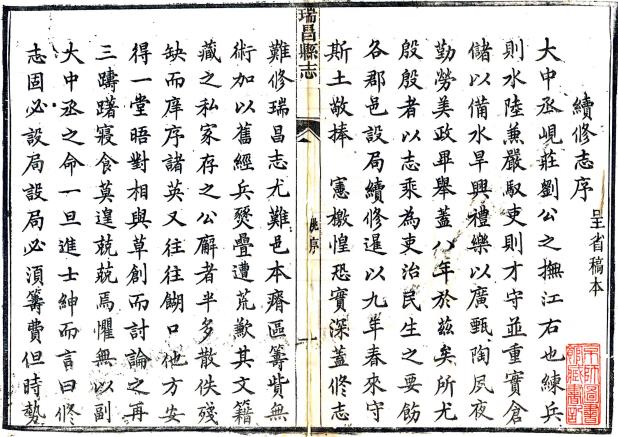 續修志序
呈省稿本
大中丞峴莊劉公之撫江右也練兵
則水陸兼嚴馭吏則才守並重實倉
儲以備水旱興禮樂以廣甄陶夙夜
勤勞美政畢舉蓋八年於茲矣所尤
殷殷者以志乘為吏治民生之要飭
各郡邑設局續修暹以九年春來守
斯土敬捧 憲檄惶恐實深蓋修志
瑞昌縣志
序
一
難修瑞昌志尤難邑本瘠區籌貲無
術加以舊經兵燹疊遭荒歉其文籍
藏之私家存之公廨者半多散佚殘
缺而庠序諸英又往往餬口他方安
得一堂晤對相與草創而討論之再
三躊躇寢食莫遑兢兢焉懼無以副
大中丞之命一旦進士紳而言曰修
志固必設局設局必須籌費但時勢